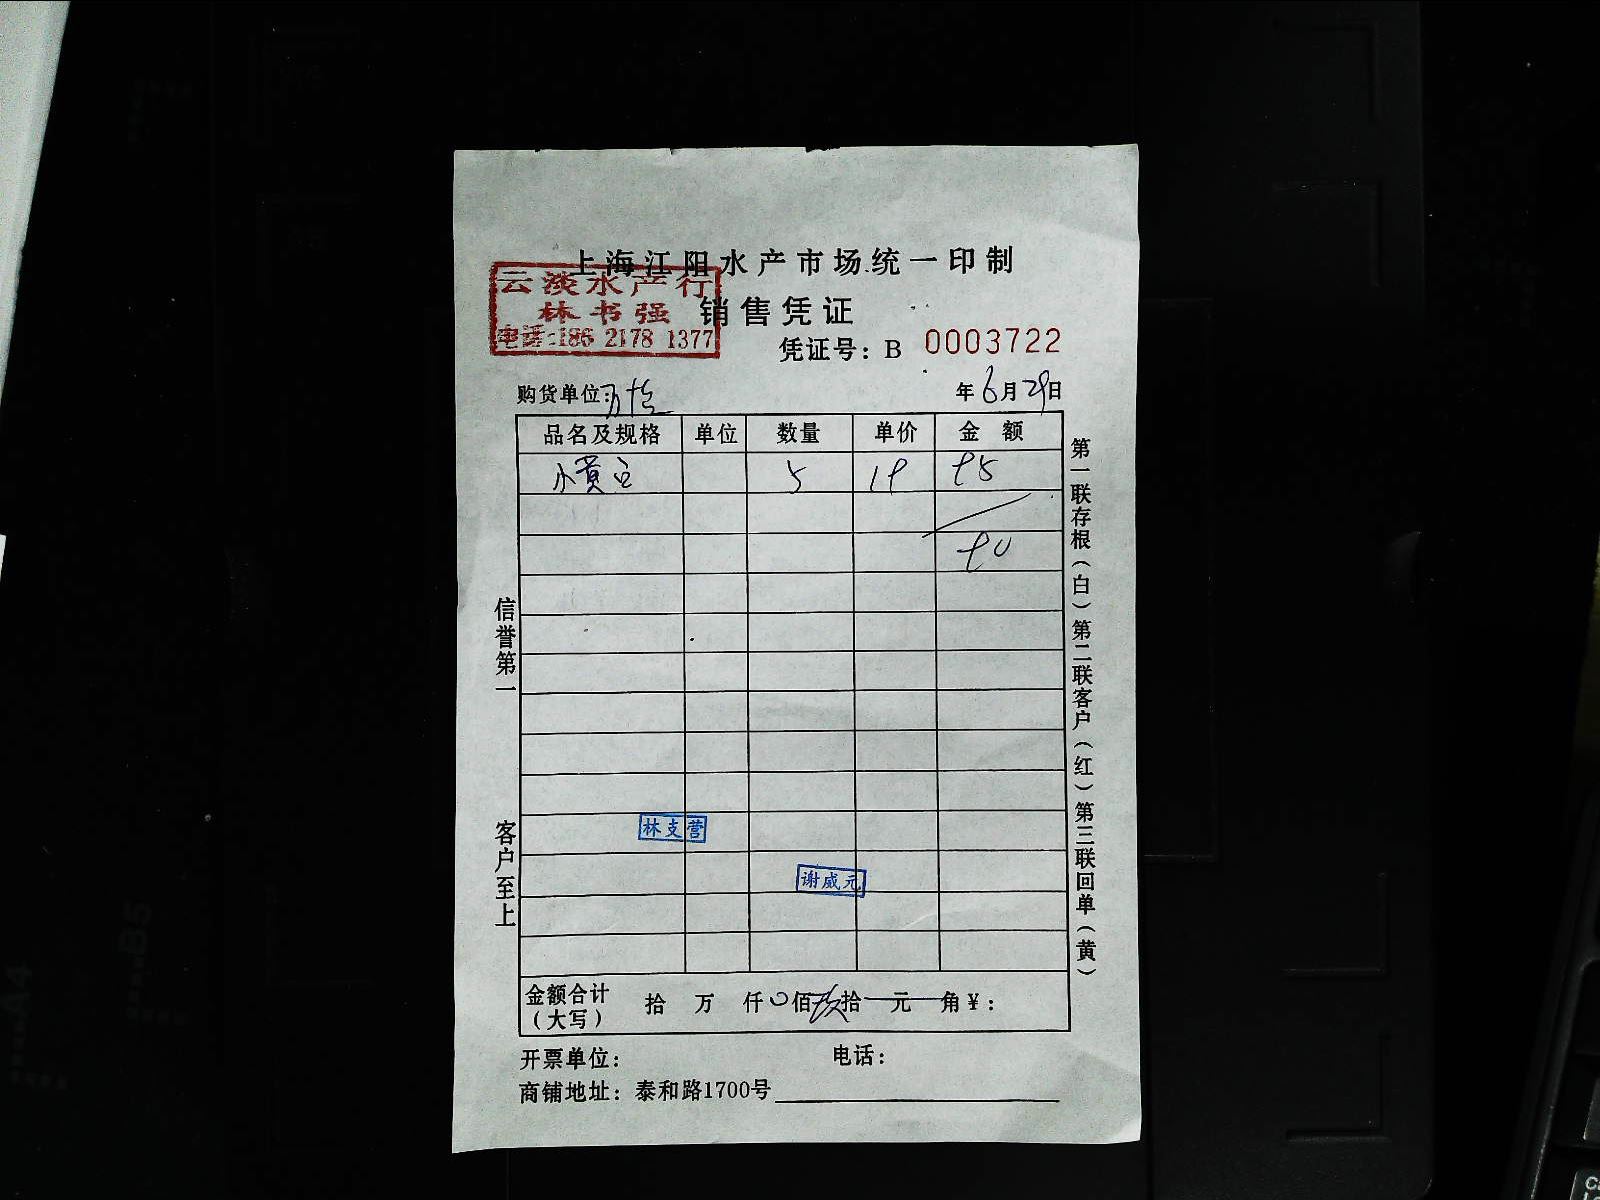 上海江阳水产市场统一印制
云淡水产行
林书强
电话:186 2178 1377
销售凭证
凭证号：B 0003722
购货单位:万
年6月29日
品名及规格 单位 数量 单价 金额
小黄 5 19 95
90
信誉第一
客户至上
第一联存根（白）第二联客户（红）第三联回单（黄）
林支营
谢威元
金额合计（大写） 拾 万 仟0佰玖拾 元 角¥:
开票单位: 电话:
商铺地址: 泰和路1700号